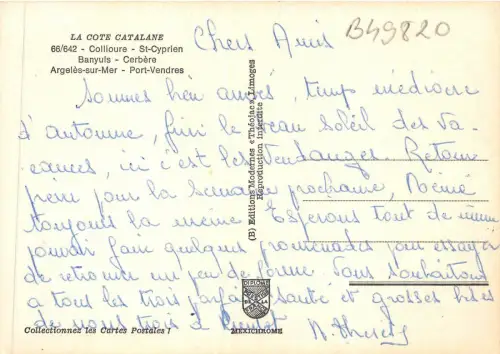 LA COTE CATALANE
66/642 - Collioure - St-Cyprien
Banyuls - Cerbère
Argelès-sur-Mer - Port-Vendres
B49820
Chers Amis
Sommes bien arrivés, temps médiocre
d'automne, fini le beau soleil des va
cances, ici c'est les vendanges. Retour
pour la semaine prochaine, Mémé
toujours la même. Espérons tout de même
pouvoir faire quelques promenades pour essayer
de retrouver un peu de forme. Vous souhaitons
a tous les trois parfaite santé et grosses bises
de nous trois à bientôt
(B) Editions Modernes « Théojac » Limoges
Reproduction Interdite
Collectionnez les Cartes Postales !
MEXICHROME